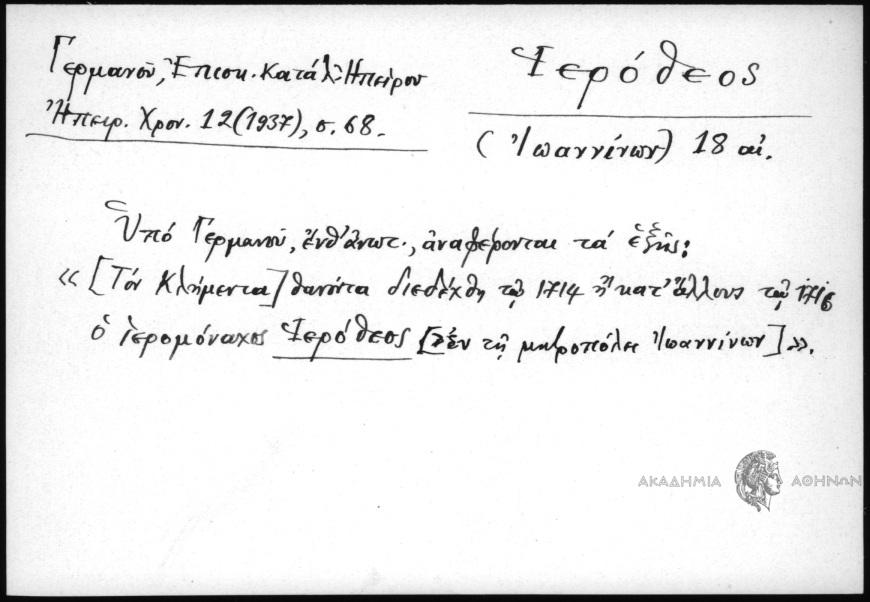 Γερμανοῦ, Ἐπισκ. Κατάλ. Ἠπείρου
Ἠπειρ. Χρον. 12 (1937), σ. 68.
Ἱερόθεος
(Ἰωαννίνων) 18 αἰ.
Ὑπό Γερμανοῦ, ἔνθ' ἀνωτ., ἀναφέρονται τά ἑξῆς:
«[Τόν Κλήμεντα] θανόντα διεδέχθη τῷ 1714 ἤ κατ' ἄλλους τῷ 1716
ὁ ἱερομόναχος Ἱερόθεος [ἐν τῇ μητροπόλει Ἰωαννίνων]».
ΑΚΑΔΗΜΙΑ ΑΘΗΝΩΝ